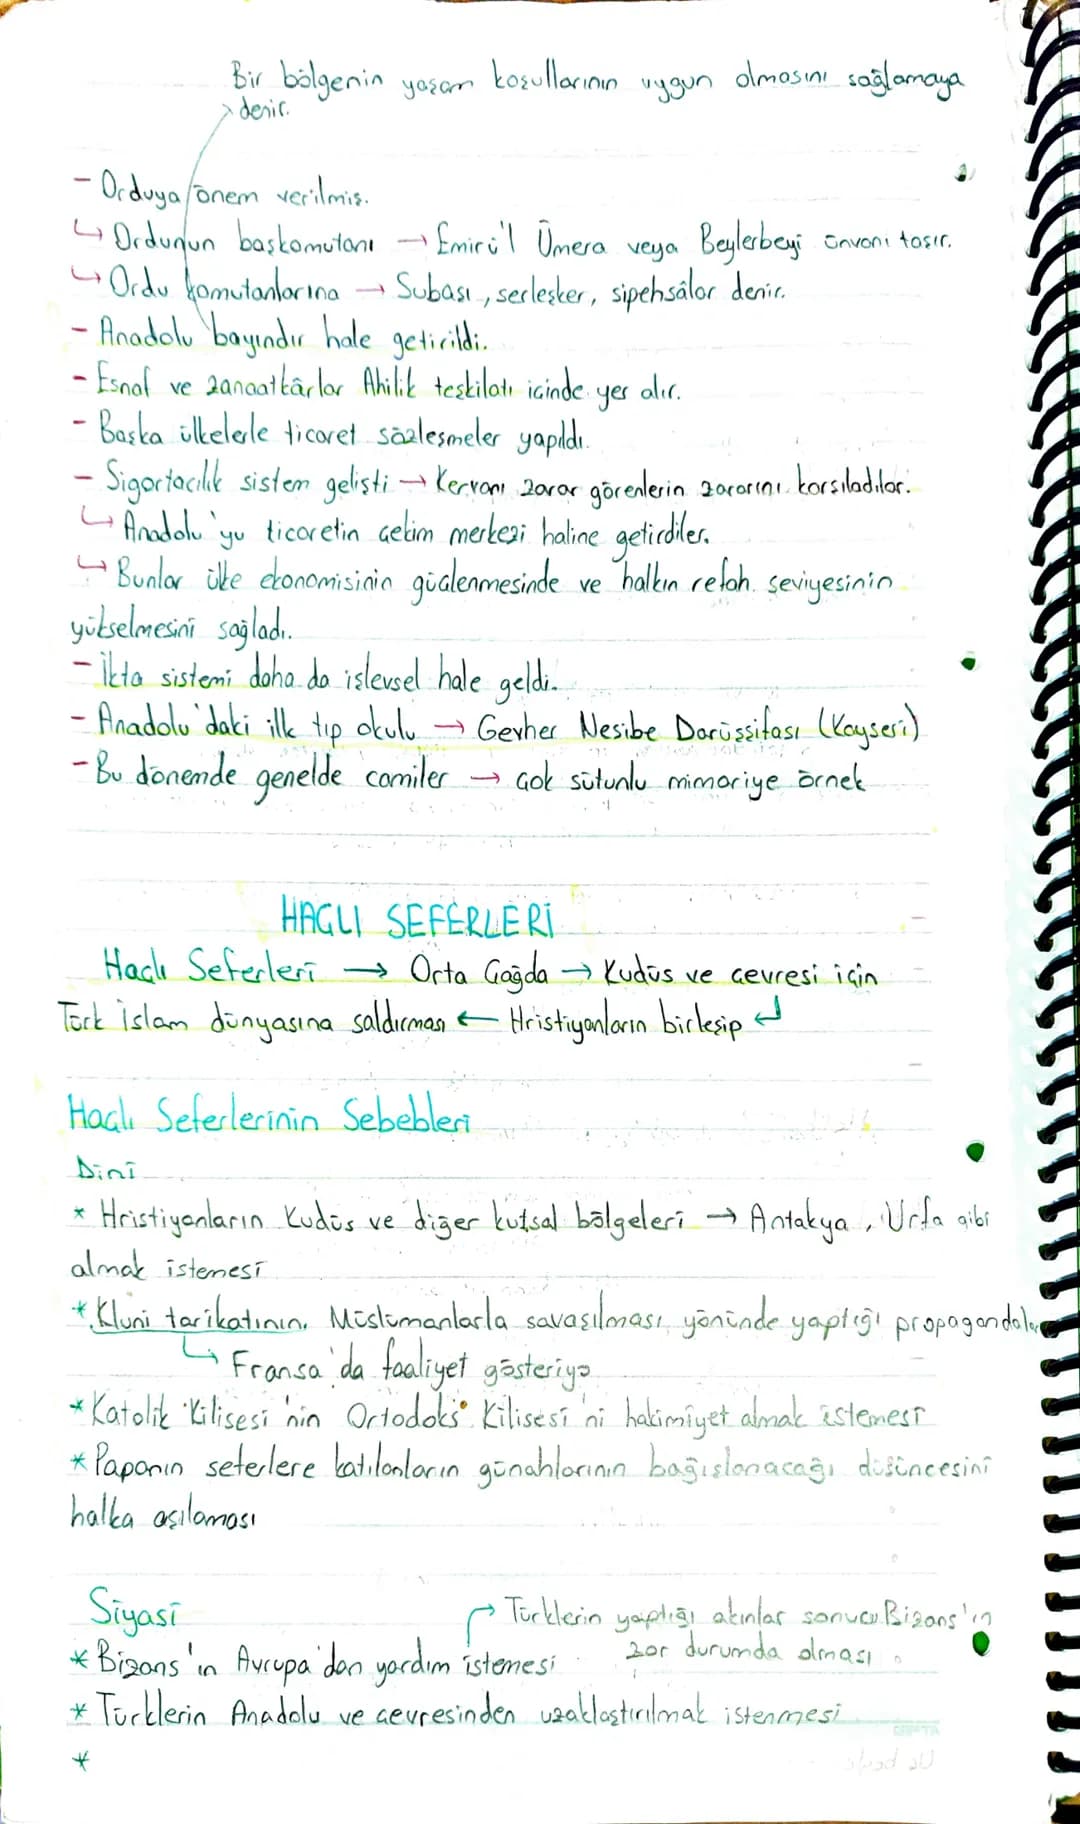 Bir bölgenin yaşam koşullarının uygun olmasını sağlamaya
denir.
- Orduya önem verilmiş.
↳ Ordunun başkomutanı → Emirü'l Ümera veya Beylerbeyi ünvanı taşır.
↳ Ordu komutanlarına → Subaşı, serleşker, sipehsâlar denir.
- Anadolu bayındır hale getirildi.
- Esnaf ve zanaatkârlar Ahilik teşkilatı içinde yer alır.
- Başka ülkelerle ticaret sözleşmeler yapıldı.
- Sigortacılık sistem gelişti → Kervanı zarar görenlerin zararını karşıladılar.
↳ Anadolu'yu ticaretin çekim merkezi haline getirdiler.
↳ Bunlar ülke ekonomisinin güçlenmesinde ve halkın refah seviyesinin
yükselmesini sağladı.
- İkta sistemi daha da işlevsel hale geldi.
- Anadolu'daki ilk tıp okulu → Gevher Nesibe Darüşşifası (Kayseri)
- Bu dönemde genelde camiler → çok sütunlu mimariye örnek
HAÇLI SEFERLERİ
Haçlı Seferleri → Orta Çağda → Kudüs ve çevresi için
Türk İslam dünyasına saldırması ← Hristiyanların birleşip ↵
Haçlı Seferlerinin Sebebleri
Dini
* Hristiyanların Kudüs ve diğer kutsal bölgeleri → Antakya, Urfa gibi
almak istemesi
* Kluni tarikatının Müslümanlarla savaşılması yönünde yaptığı propagandalar
↳ Fransa'da faaliyet gösteriyo
* Katolik Kilisesi'nin Ortodoks Kilisesi'ni hakimiyet almak istemesi
* Papanın seferlere katılanların günahlarının bağışlanacağı düşüncesini
halka aşılaması
Siyasi
→ Türklerin yaptığı akınlar sonucu Bizans'ın
zor durumda olması
* Bizans'ın Avrupa'dan yardım istemesi
* Türklerin Anadolu ve çevresinden uzaklaştırılmak istenmesi
*